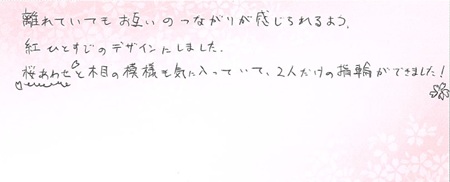 離れていてもお互いのつながりが感じられるよう、
紅ひとすじのデザインにしました。
桜あわせと木目の模様も気に入っていて、2人だけの指輪ができました！